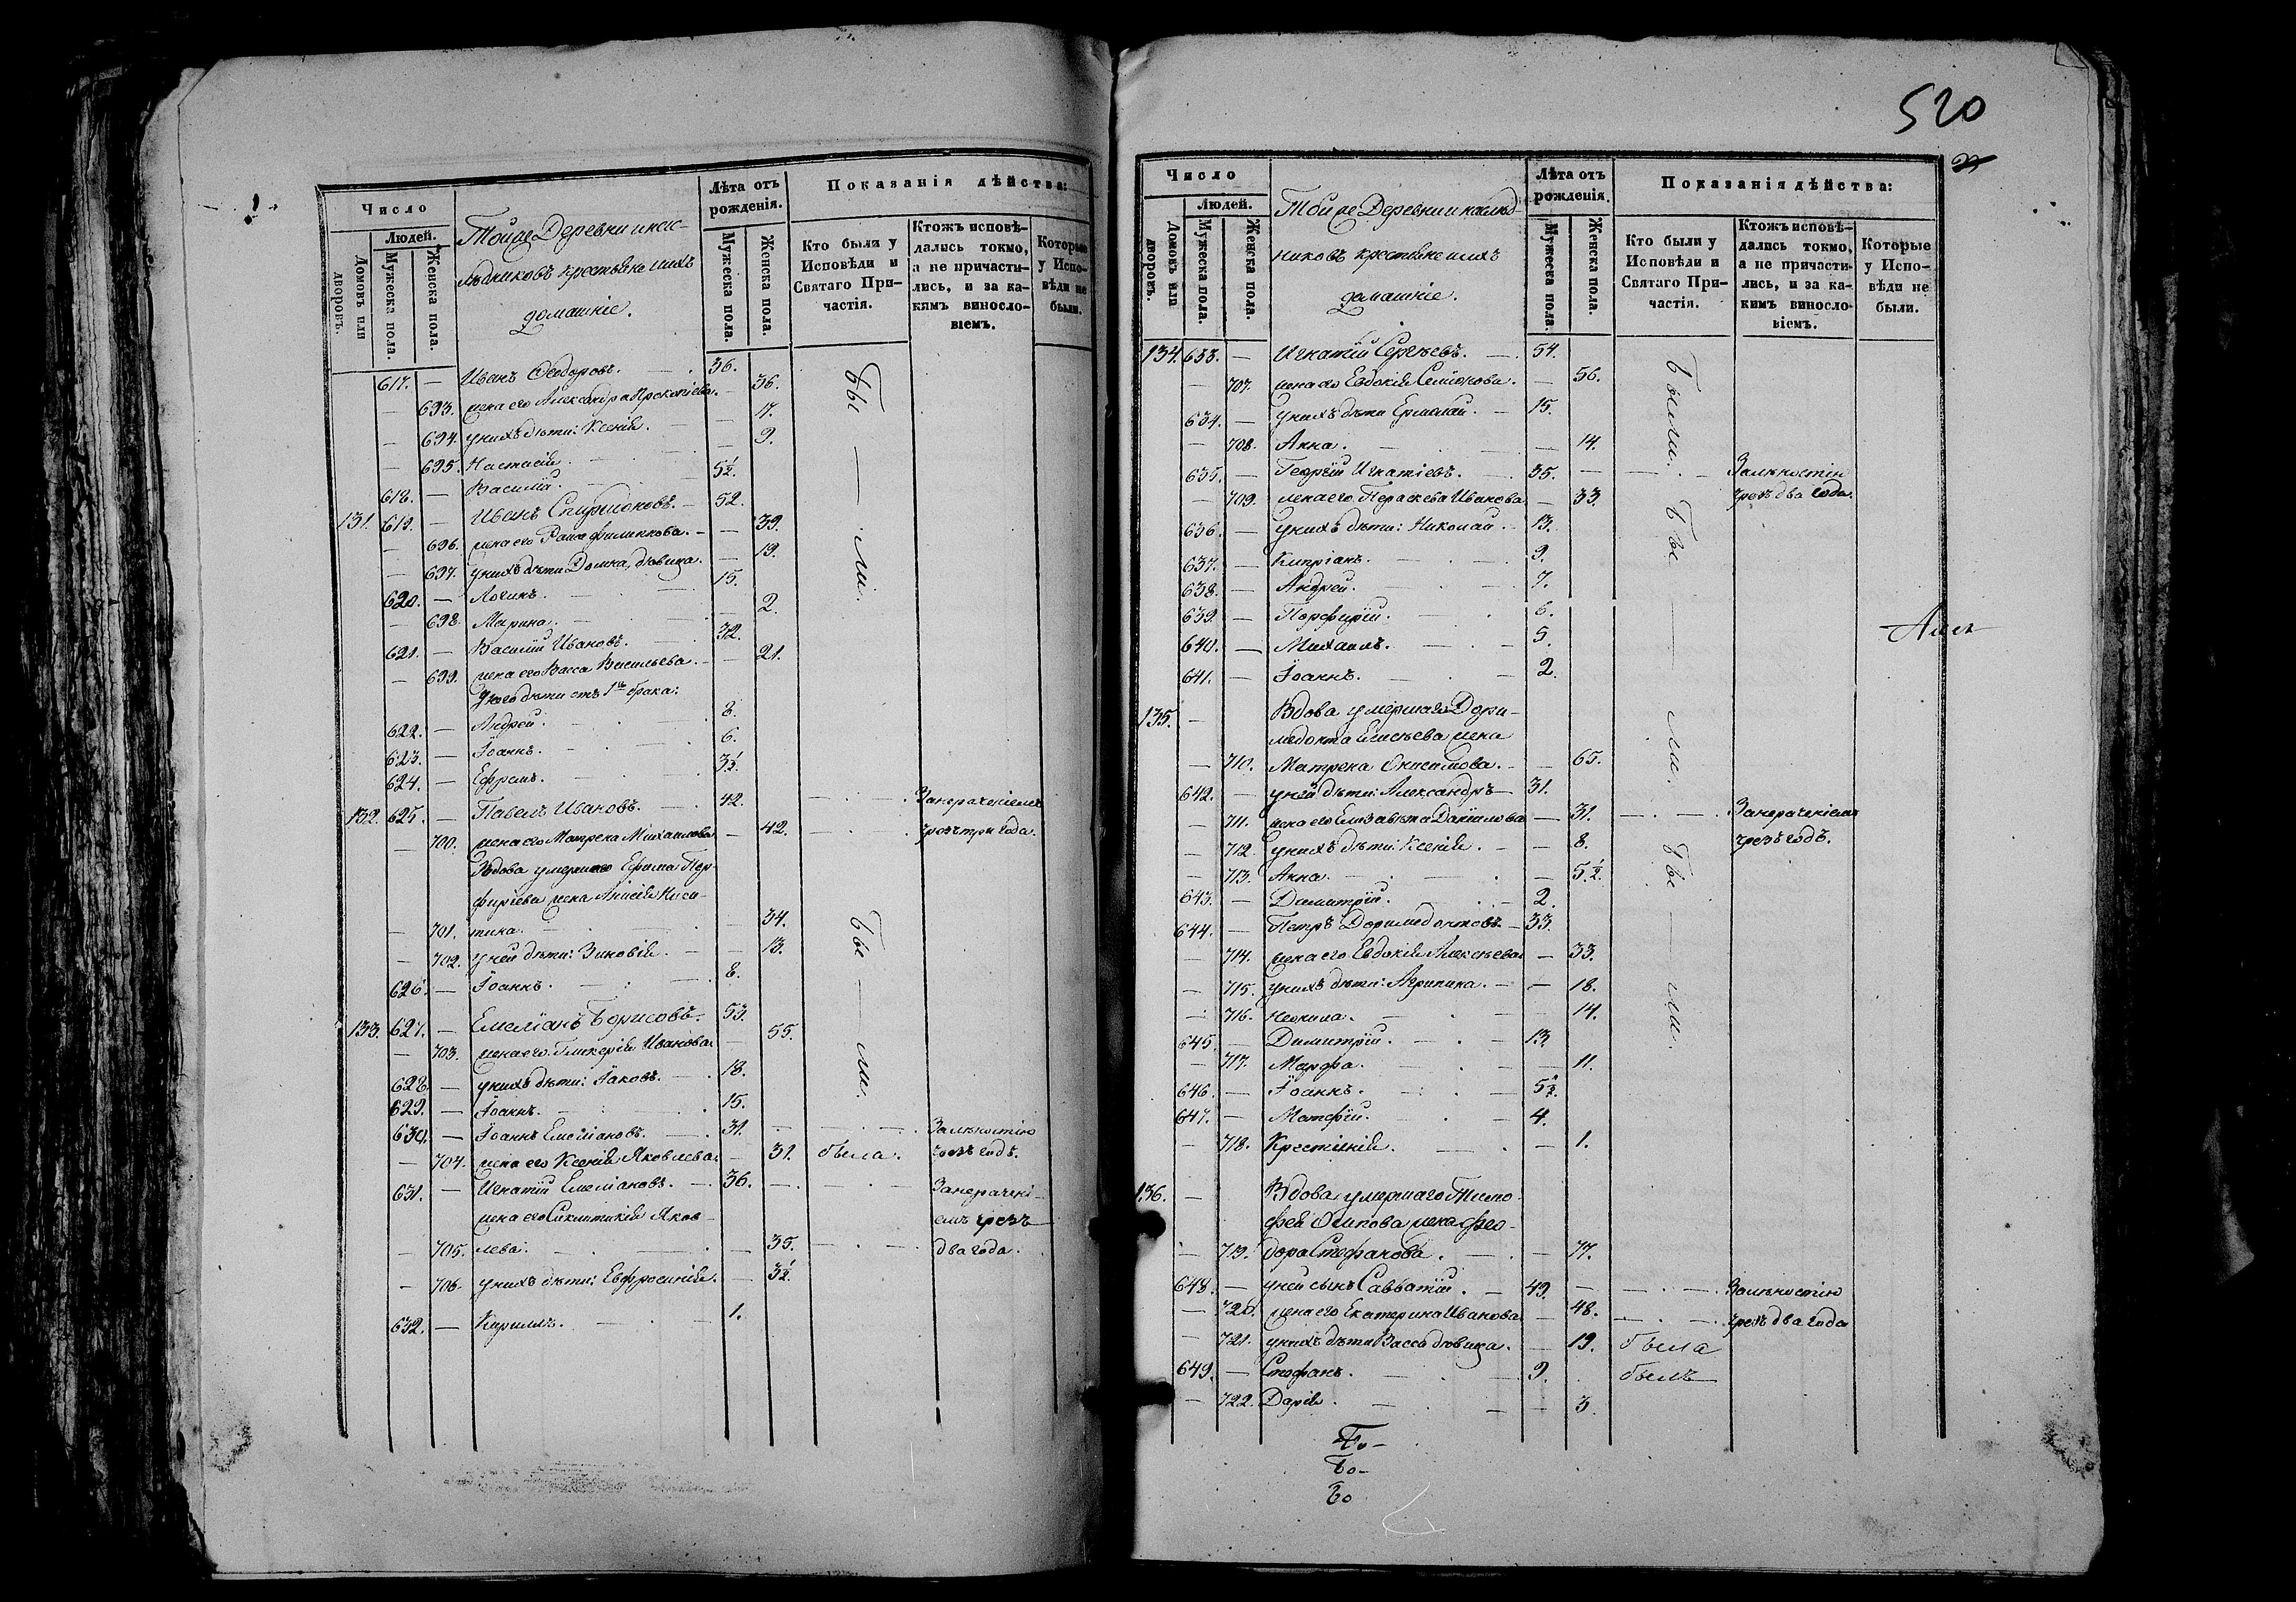 Число
Людей.
Домовъ или дворовъ.
Мужеска пола.
Женска пола.
Тойже Деревни и нас-
лѣдниковъ крестьяне и ихъ
домашніе.
Лѣта отъ рожденія.
Мужеска пола.
Женска пола.
Показанія дѣйства:
Кто были у Исповѣди и Святаго Причастія.
Ктожъ исповѣдались токмо, а не причастились, и за какимъ винословіемъ.
Которые у Исповѣди не были.
617. — Иванъ Ѳеодоровъ. — 36.
— 693. жена его Александра Прокопіева. — 36.
— 694. у нихъ дѣти: Ксенія. — 17.
— 695. Настасія. — 9.
618. — Василій. 5½.
131. 619. — Иванъ Спиридоновъ. — 52.
— 696. жена его Раиса Филиппова. — 39.
— 697. у нихъ дѣти Домна, дѣвица. — 19.
620. — Логинъ. 15.
— 698. Марина. — 2.
621. — Василій Ивановъ. 32.
— 699. жена его Васса Васильева. — 21.
У него дѣти отъ 1го брака:
622. — Андрей. 8.
623. — Іоаннъ. 6.
624. — Ефремъ. 3½.
Бы — ли.
132. 625. — Павелъ Ивановъ. 42. Занераченіемъ
— 700. жена его Матрена Михаилова — 42. чрезъ три года.
Вдова умершаго Ефима Пор-
фиріева жена Анисія Ники-
— 701. тина. 34.
— 702. у ней дѣти: Зиновія. — 13.
626. — Іоаннъ. 8.
133. 627. — Емеліанъ Борисовъ. 53.
— 703. жена его Гликерія Иванова — 55.
628. — у нихъ дѣти: Іаковъ. 18.
629. — Іоаннъ. 15.
Бы — ли.
630. — Іоаннъ Емеліановъ. 31. Залѣностію
— 704. жена его Ксенія Яковлева — 31. была. чрезъ годъ.
631. — Игнатій Емеліановъ. 36. Занерачені-
жена его Синклитикія Яков- емъ чрезъ
— 705. лева. — 35. два года.
— 706. у нихъ дѣти: Евфросинія. — 3½.
632. — Кириллъ. 1.
520
Число
Людей.
Домовъ или дворовъ.
Мужеска пола.
Женска пола.
Тойже Деревни и наслѣд-
никовъ крестьяне и ихъ
домашніе.
Лѣта отъ рожденія.
Мужеска пола.
Женска пола.
Показанія дѣйства:
Кто были у Исповѣди и Святаго Причастія.
Ктожъ исповѣдались токмо, а не причастились, и за какимъ винословіемъ.
Которые у Исповѣди не были.
134. 633. — Игнатій Сергѣевъ. — 54.
— 707. жена его Евдокія Семіонова. — 56.
634. — у нихъ дѣти Ермолай. — 15.
— 708. Анна. — 14.
Были.
635. — Георгій Игнатіевъ. 35. Залѣностію
— 709. жена его Параскева Иванова — 33. чрезъ два года.
636. — у нихъ дѣти: Николай. — 13.
637. — Кипріанъ. 9.
638. — Андрей. 7.
639. — Порфирій. 6.
640. — Михаилъ. 5.
641. — Іоаннъ. 2.
135. — Вдова умершаго Дори-
медонта Елисѣева жена
— 710. Матрена Онисимова. — 65.
Бы — ли.
642. — у ней дѣти: Александръ — 31.
— 711. жена его Елизавета Даніилова — 31. Занераченіемъ
— 712. у нихъ дѣти: Ксенія. — 8. чрезъ годъ.
— 713. Анна. — 5½.
643. — Димитрій. 2.
644. — Петръ Доримедонтовъ. — 33.
— 714. жена его Евдокія Алексѣева — 33.
— 715. у нихъ дѣти: Агрипина. — 18.
— 716. Неонила. — 14.
645. — Димитрій. 13.
— 717. Марѳа. — 11.
646. — Іоаннъ. 5½.
647. — Матфій. 4.
— 718. Крестиния. — 1.
Бы — ли.
136. — Вдова умершаго Тимо-
фея Осипова жена Ѳео-
— 719. дора Стефанова. — 77.
648. — у ней сынъ Савватій. 49. Залѣностію
— 720. жена его Екатерина Иванова — 48. чрезъ два года
— 721. у нихъ дѣти Васса дѣвица. — 19. была
649. — Стефанъ. 9. былъ
— 722. Дарія. — 3.